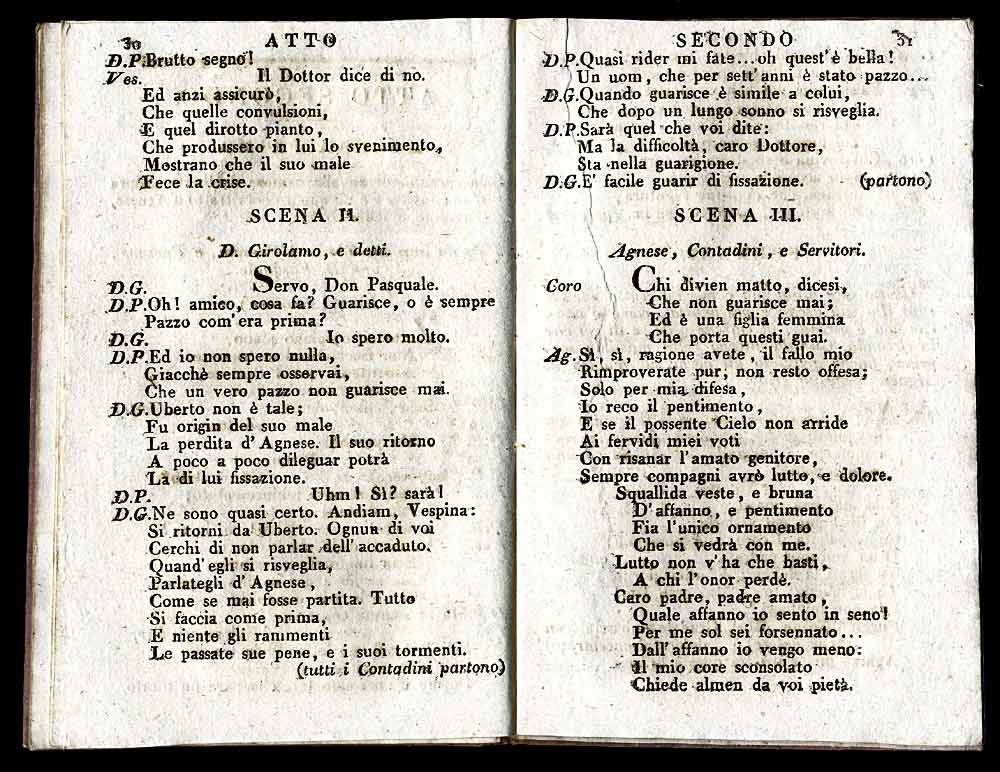 30 ATTO
D.P. Brutto segno!
Ves. Il Dottor dice di no.
Ed anzi assicurò,
Che quelle convulsioni,
E quel dirotto pianto,
Che produssero in lui lo svenimento,
Mostrano che il suo male
Fece la crise.
SCENA II.
D. Girolamo, e detti.
D.G. Servo, Don Pasquale.
D.P. Oh! amico, cosa fa? Guarisce, o è sempre
Pazzo com'era prima?
D.G. Io spero molto.
D.P. Ed io non spero nulla,
Giacchè sempre osservai,
Che un vero pazzo non guarisce mai.
D.G. Uberto non è tale;
Fu origin del suo male
La perdita d'Agnese. Il suo ritorno
A poco a poco dileguar potrà
La di lui fissazione.
D.P. Uhm! Sì? sarà!
D.G. Ne sono quasi certo. Andiam, Vespina:
Si ritorni da Uberto. Ognun di voi
Cerchi di non parlar dell'accaduto.
Quand'egli si risveglia,
Parlategli d'Agnese,
Come se mai fosse partita. Tutto
Si faccia come prima,
E niente gli rammenti
Le passate sue pene, e i suoi tormenti.
(tutti i Contadini partono)
SECONDO 31
D.P. Quasi rider mi fate...oh quest'è bella!
Un uom, che per sett'anni è stato pazzo...
D.G. Quando guarisce è simile a colui,
Che dopo un lungo sonno si risveglia.
D.P. Sarà quel che voi dite:
Ma la difficoltà, caro Dottore,
Sta nella guarigione.
D.G. E' facile guarir di fissazione. (partono)
SCENA III.
Agnese, Contadini, e Servitori.
Coro Chi divien matto, dicesi,
Che non guarisce mai;
Ed è una figlia femmina
Che porta questi guai.
Ag. Sì, sì, ragione avete, il fallo mio
Rimproverate pur, non resto offesa;
Solo per mia difesa,
Io reco il pentimento,
E se il possente Cielo non arride
Ai fervidi miei voti
Con risanar l'amato genitore,
Sempre compagni avrò lutto, e dolore.
Squallida veste, e bruna
D'affanno, e pentimento
Fia l'unico ornamento
Che si vedrà con me.
Lutto non v'ha che basti,
A chi l'onor perdè.
Caro padre, padre amato,
Quale affanno io sento in seno!
Per me sol sei forsennato...
Dall'affanno io vengo meno:
Il mio core sconsolato
Chiede almen da voi pietà.